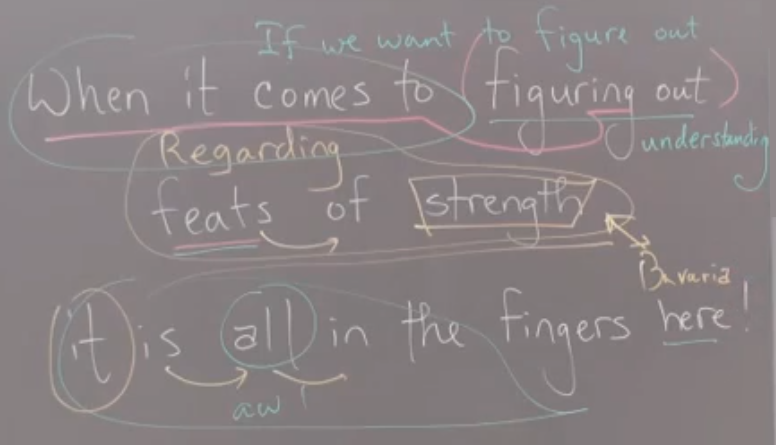 If we want to figure out
When it comes to (figuring out)
Regarding
understanding
feats of strength
Bavaria
it is all in the fingers here!
aw l